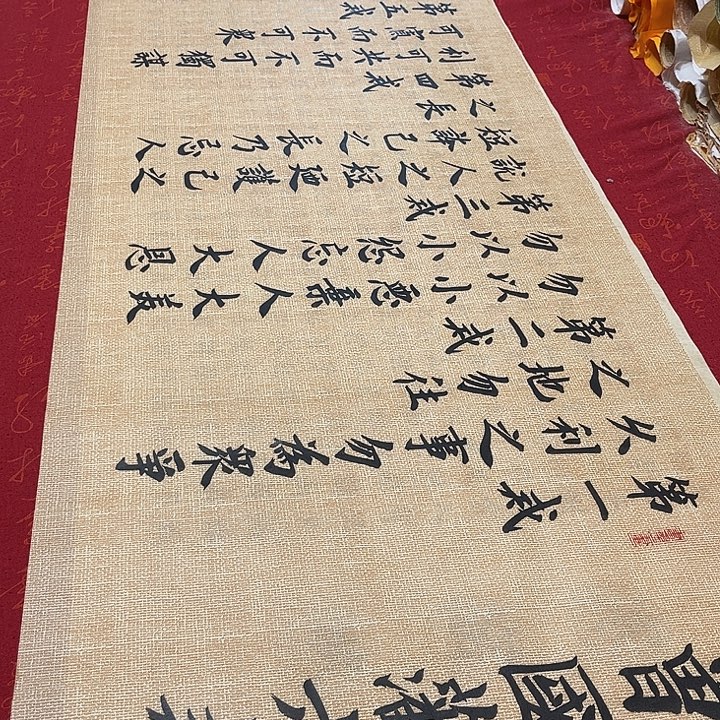 曾國藩六
第一戒
久利之事勿為眾爭
之地勿往
第二戒
勿以小惡棄人大美
勿以小怨忘人大恩
第三戒
說人之短更護己之
短夸己之長乃忌人
之長
第四戒
利可共而不可獨謀
可寡而不可眾
第五戒